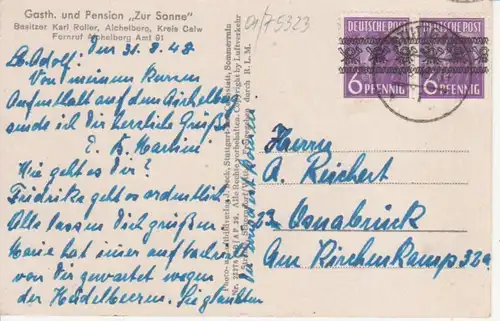 Gasth. und Pension „Zur Sonne"
Besitzer Karl Roller, Aichelberg, Kreis Calw
Fernruf Aichelberg Amt 91
01/75323
den 31.8.48.
Lb. Adolf!
Von meinem kurzen
Aufenthalt auf dem Aichelberg
sende ich Dir herzliche Grüße
E. B. Martin
Wie geht es Dir?
Friedrike geht es ordentlich.
Alle lassen Dich grüßen
Marie hat immer auf
von Dir gewartet wegen
der Heidelbeeren. Sie glaubten
DEUTSCHE POST
6 PFENNIG
DEUTSCHE POST
6 PFENNIG
Herrn
A. Reichert
23 Osnabrück
Am Kirchenkamp 32a